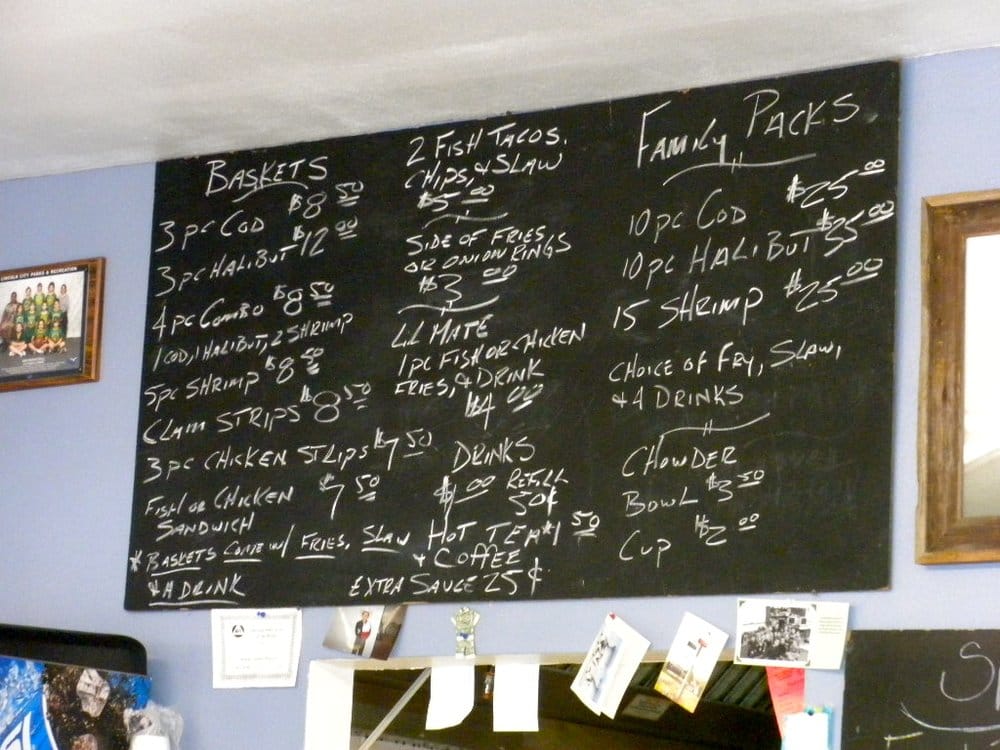 BASKETS
3 PC COD $8 50
3 PC HALIBUT $12 00
4 PC COMBO $8 50
1 COD, 1 HALIBUT, 2 SHRIMP
5PC SHRIMP $8 50
CLAM STRIPS $8 50
3 PC CHICKEN STLIPS $7 50
FISH OR CHICKEN $7 50
SANDWICH
* BASKETS COME W/ FRIES, SLAW
& A DRINK
2 FISH TACOS,
CHIPS, & SLAW
$5 00
SIDE OF FRIES
OR ONION RINGS
$3 00
LIL MATE
1 PC FISH OR CHICKEN
FRIES, & DRINK
$4 00
DRINKS
$1 00 REFILL
50¢
HOT TEA $1 50
& COFFEE
EXTRA SAUCE 25¢
FAMILY PACKS
10 PC COD $25 00
10 PC HALIBUT $35 00
15 SHRIMP $25 00
CHOICE OF FRY, SLAW,
& 4 DRINKS
CHOWDER
BOWL $3 50
CUP $2 00
LINCOLN CITY PARKS & RECREATION